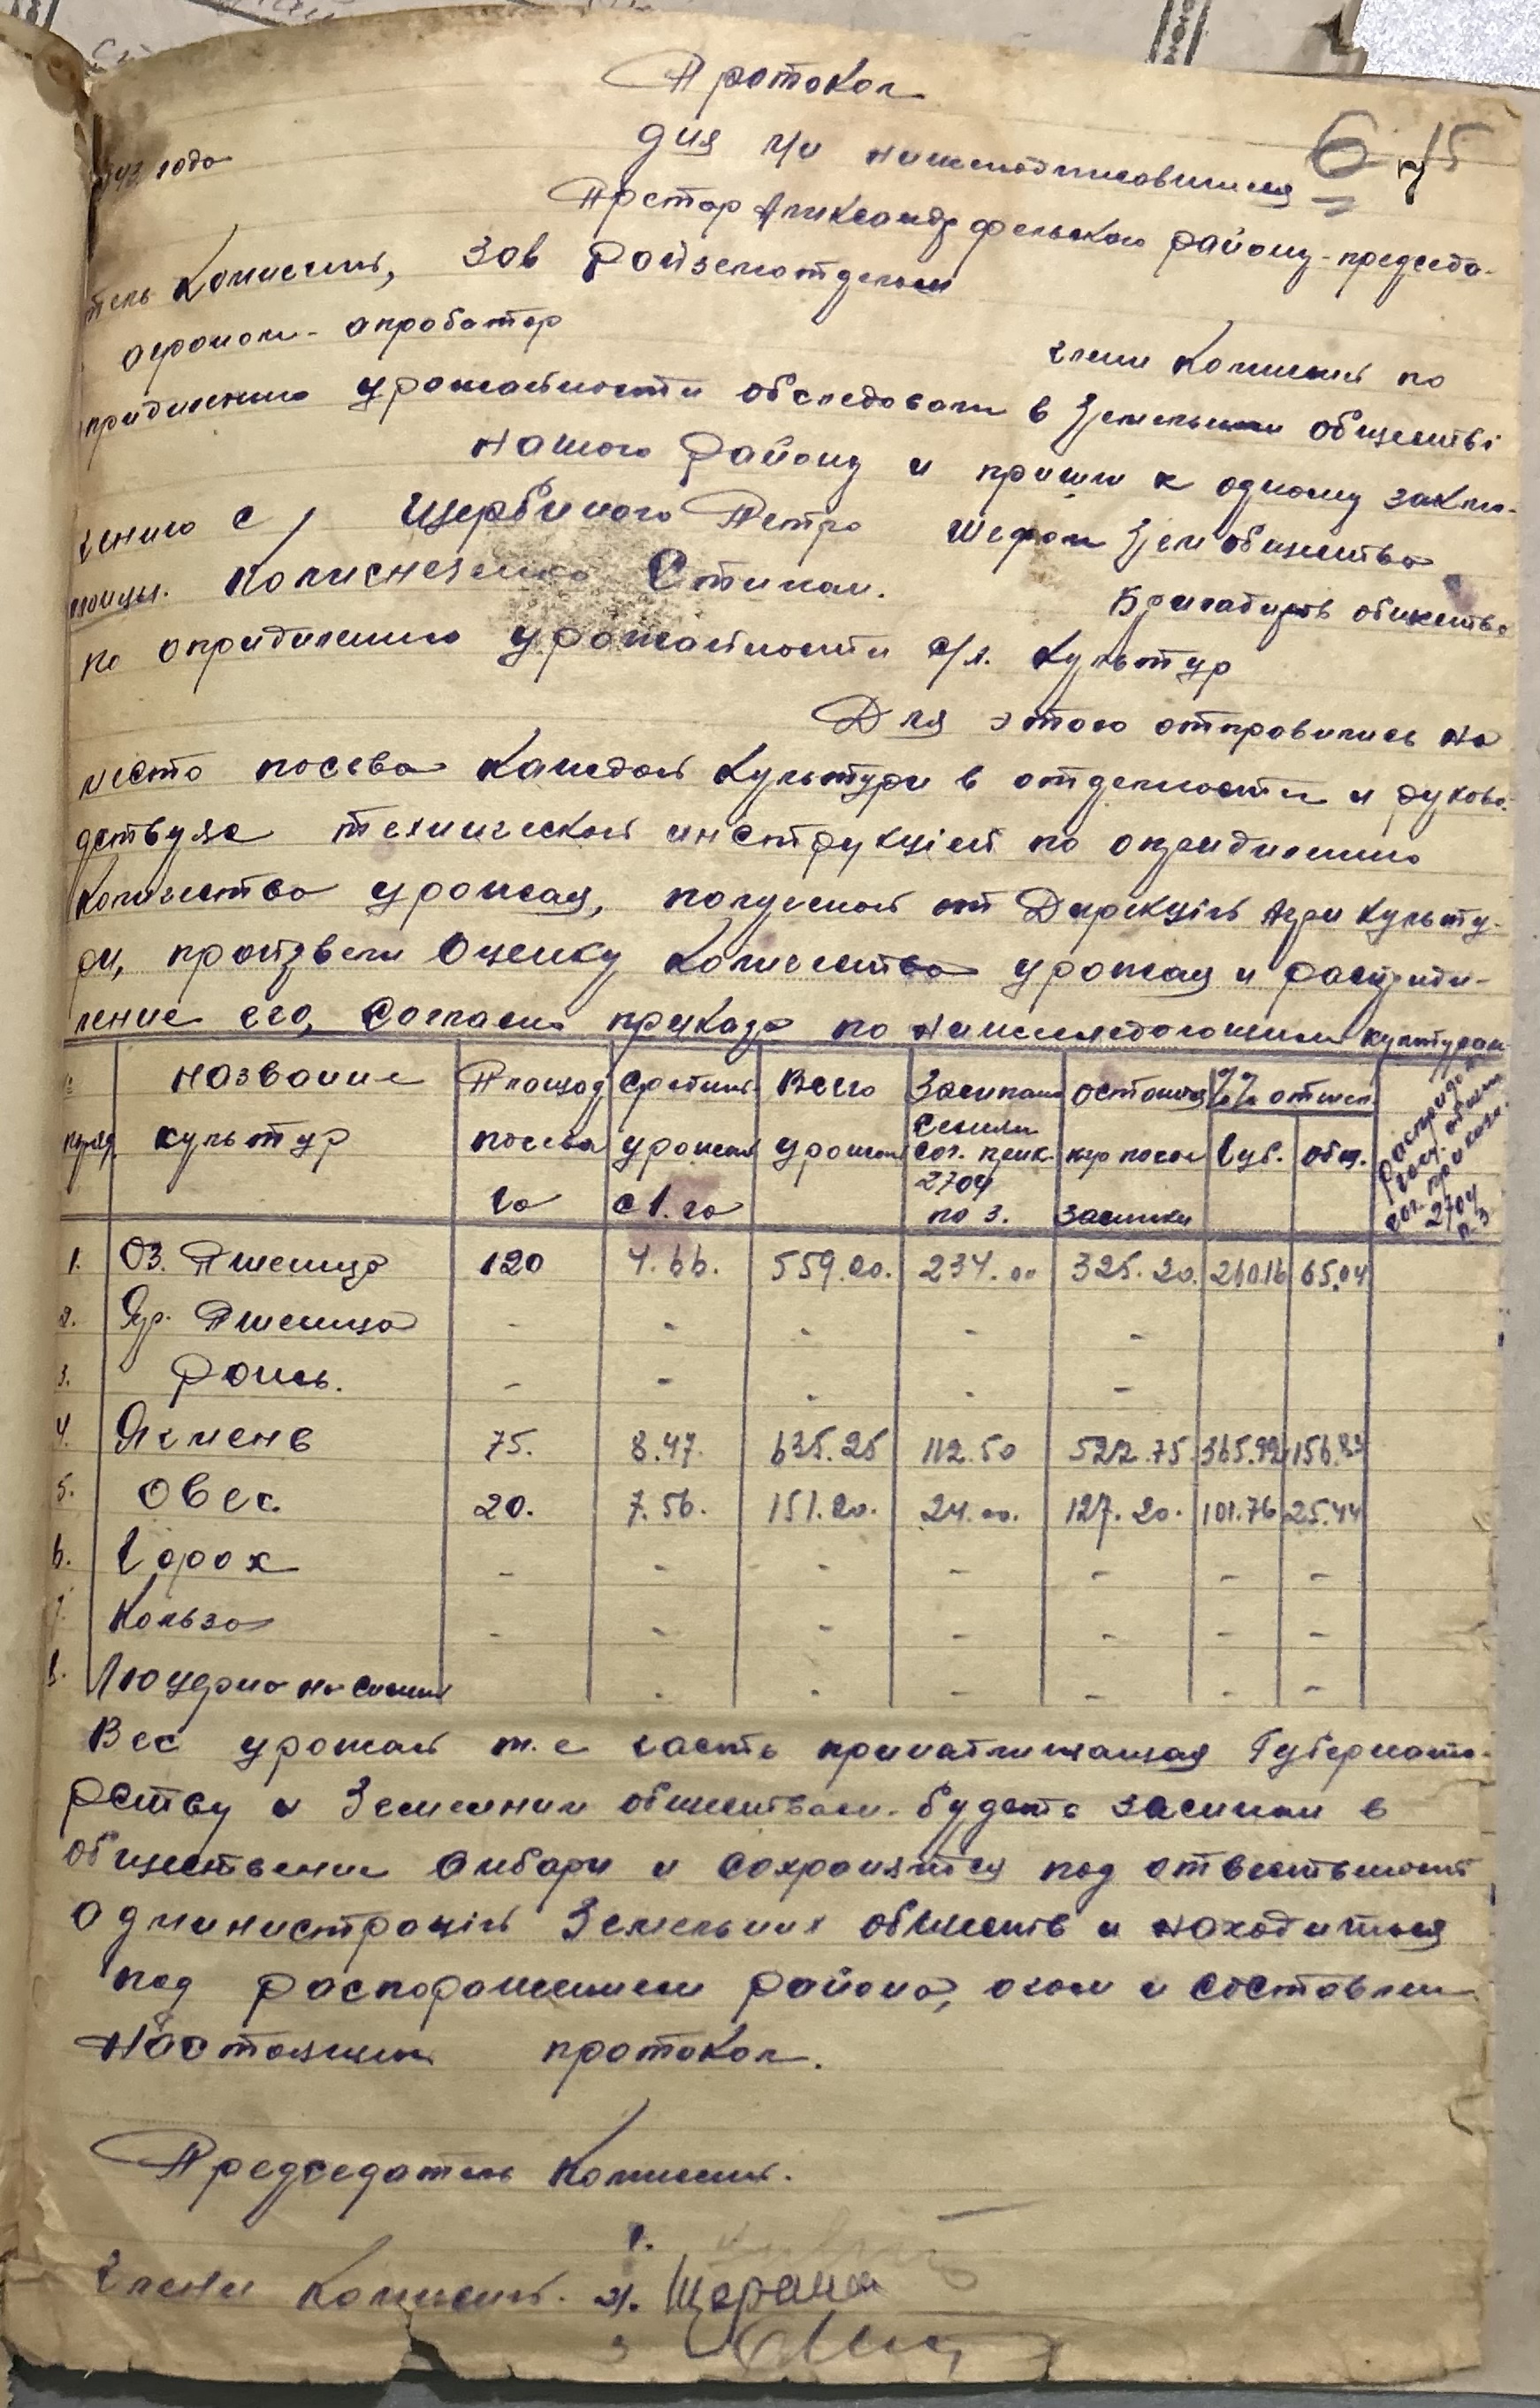 Протокол
6 15
194 года
дня м/и нижеподписавшиеся
Претор Александрфельского району - председа-
тель Комисіи, Зав Райземотделом
агроном - апробатор
члени Комисіи по
опридилению урожайности обследовали в Земельном обществі
нашого Району и пришли к одному заклю-
чению с / Щербиного Петро Шефом Зем общества
Колисниченко Степаном. Бригадирв общества
по опридилению урожайности с/х. культур
Для этого отправились на
место посева каждой культури в отдельности и руково-
дствуясь технической инструкціей по опридилению
количества урожая, полученой от Дирекціи Агрикульту-
ри, произвели оценку количества урожая и расприди-
ление его, согласно приказа по нижеследующим культурам
№ название Площад Средний Всего Засипано остаток %% отчис. Расприде
поряд. культур посева урожая урожая Семян кур после Губ. общ.
га с 1. га сог. прик. 2704 по 3. засипки сог. приказа 2704 п. 3
1. Оз. Пшеница 120 4.66. 559.20. 234.00 325.20. 260.16 65.04
2. Яр. Пшеница - - - - -
3. Рожь. - - - - -
4. Ячменв 75. 8.47. 635.25 112.50 522.75 365.92 156.83
5. Овес. 20. 7.56. 151.20. 24.00. 127.20. 101.76 25.44
6. Горох - - - - - - -
7. Кольза - - - - - - -
8. Люцерна на Семена - - - - - -
Вес урожай т.е часть принатлижащая Губернато-
рству и Земельним обществам. будете засипан в
обществени Амбари и сохранятся под ответствености
Администраціи Земельних обществ и находиться
под распоражением района, о чом и составлен
настоящий протокол.
Председатель Комисіи.
1.
Члени Комисіи. 2.
3